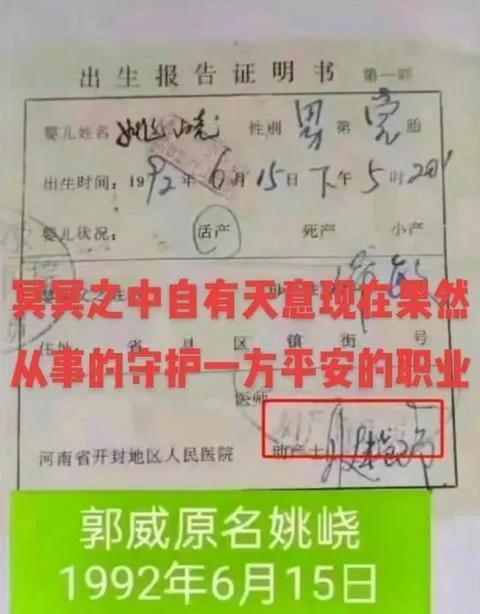 出生报告证明书 第一联
婴儿姓名 姚峣 性别 男 第 壹 胎
出生时间：1992年6月15日下午5时20
婴儿状况： 活产 死产 小产
冥冥之中自有天意现在果然
住址： 省 县 区 镇 街 号
从事的守护一方平安的职业
医师
河南省开封地区人民医院 助产士
郭威原名姚峣
1992年6月15日